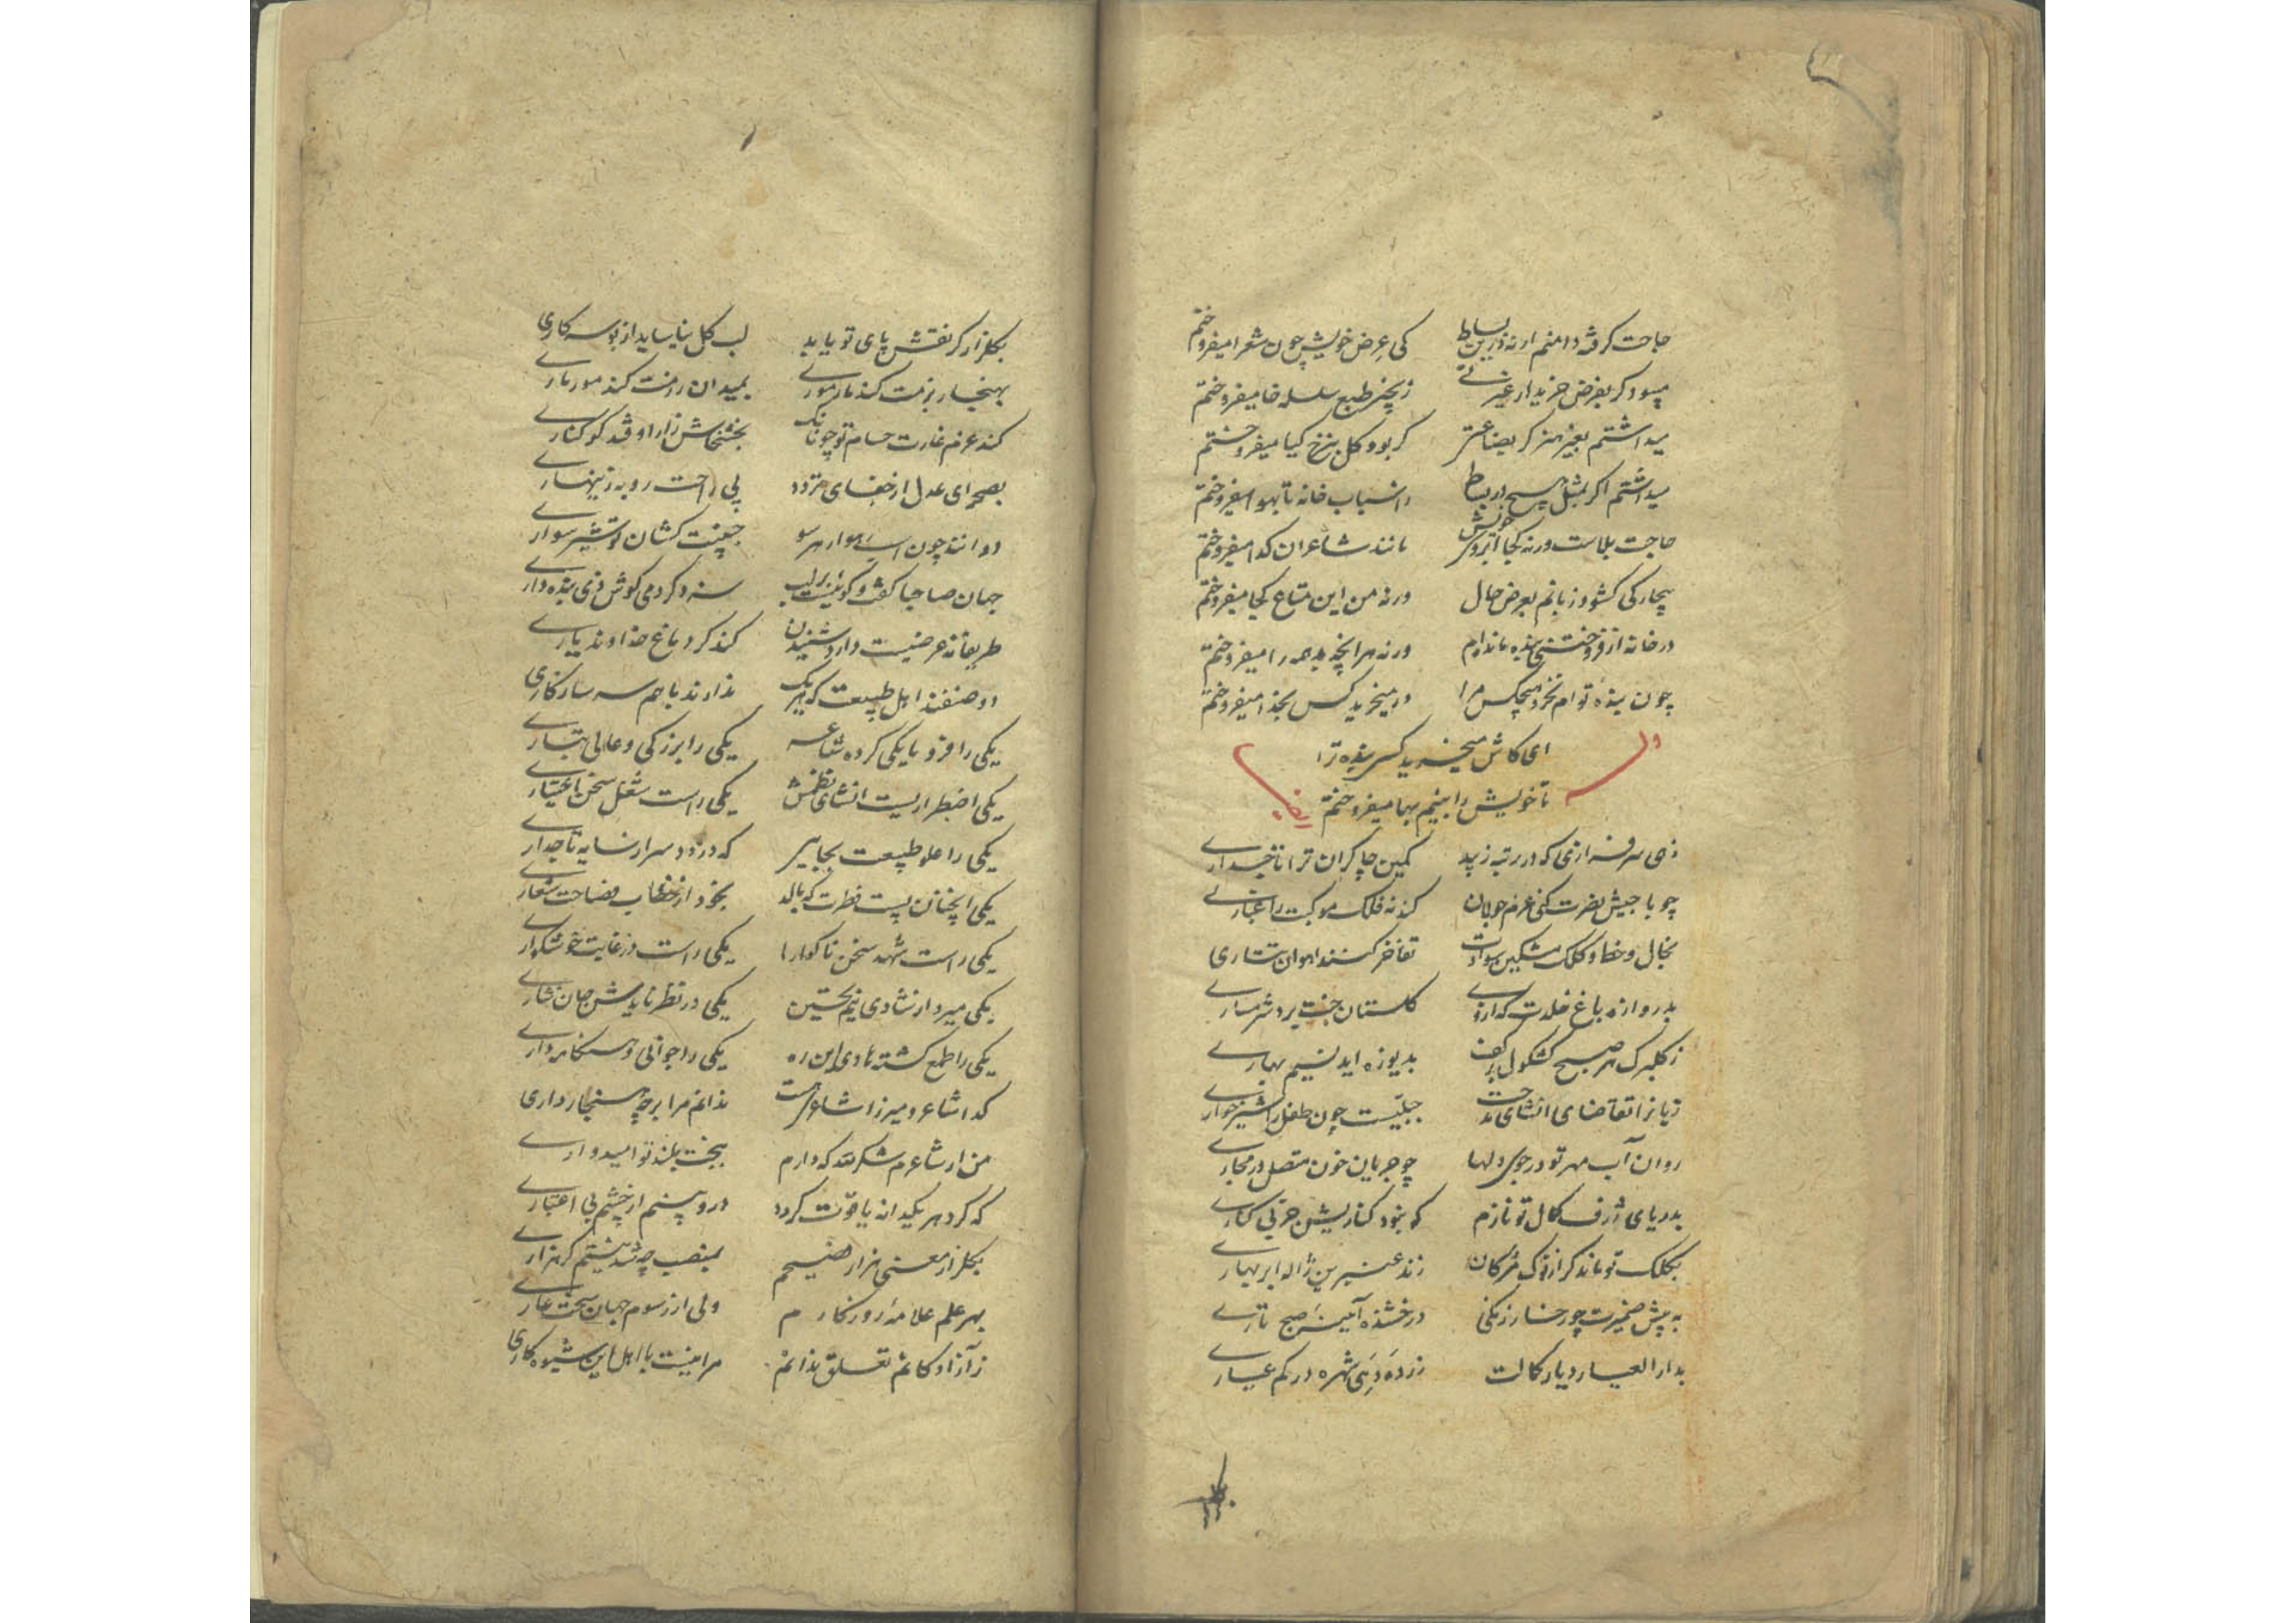 حاجت کرفته دامنم ارنه درین بساط کی عرض خویش چون شعرا میفروختم
میبود کر بفرض خریدار غیرتی زنجیر طبع سلسله خا میفروختم
میداشتم بغیر هنر کر بضاعتی کر بود کل بنرخ کیا میفروختم
میداشتم اکر بمثل هیچ در بساط اسباب خانه تا بهوا میفروختم
حاجت بلاست ورنه کجا آبروی خویش مانند شاعران کدا میفروختم
بیچارکی کشود زبانم بعرض حال ورنه من این متاع کجا میفروختم
در خانه از فروختنی بنده مانده‌ام ورنه هر آنچه بد همه را میفروختم
چون بنده تو ام نخرد هیچکس مرا ور میخرید کس بخدا میفروختم
ای کاش میخرید کسی بنده ترا
تا خویش را بنیم بها میفروختم
وله ایضا
زهی سرفرازی که در رتبه زیبد کمین چاکران ترا تاجداری
چو با جیش نصرت کنی عزم جولان کند نه فلک موکبت را غباری
بخال و خط و کلک مشکین سوادت تفاخر کنند اهوان تتاری
بدروازه باغ خلدت که ارزد کلستان جنت برد شرمساری
ز کلبرک هر صبح کشکول بر کف بدریوزه اید نسیم بهاری
زبانرا تقاضای انشای مدحت جبلیست چون طفل را شیرخواری
روان آب مهر تو در جوی دلها چو جریان خون متصل در مجاری
بدریای ژرف کمال تو نازم که نبود کناریش جز بی کناری
بکلک تو ماند کر از نوک مژکان زند عنبرین ژاله ابر بهاری
به پیش ضمیرت چو رخسار زنکی درخشنده آیینه صبح تاری
بدار العیار دیار کمالت زر ده دهی شهره در کم عیاری
بکلزار کر نقش پای تو یابد لب کل نیاساید از بوسه کاری
بهنجار بزمت کند مار موری بمیدان رزمت کند مور ماری
کند عزم غارت حسام تو چونانک بخشخاش زار اوفتد کوکناری
بصحرای عدل از جفای تردد پی راحت روبه زینهاری
دوانند چون اسب رهوار هر سو جنیبت کشان تو شیر سواری
جهان صاحبا کفت و کو نیست بر لب سزد کر دمی کوش زی بنده داری
طریفانه عرضیست دارد شنیدن کند کر دماغ خداوند یاری
دو صنفند اهل طبیعت که هر یک ندارند با هم سر سازکاری
یکی را فرومایکی کرده شاعر یکی را بزرکی و عالی تباری
یکی اضطراریست انشای نظمش یکی راست شغل سخن اختیاری
یکی را علو طبیعت بجاییر که دزدد سر از سایه تاجداری
یکی آنچنان پست فطرت که بالد بخود از خطاب فصاحت شعاری
یکی راست شهد سخن ناکوارا یکی راست در غایت خوشکواری
یکی میرد از شادی نیم تحسین یکی در نظر نایدش جان نثاری
یکی را طمع کشته هادی این ره یکی را جوانی و هنکامه داری
کدا شاعر و میرزا شاعر است ندانم مرا بر چه هنجار داری
من ار شاعرم شکر لله که دارم ببخت بلند تو امیدواری
که کر دهر یکدانه یاقوت کردد در و بینم از چشم بی اعتباری
بکلزار معنی هزار فصیحم بمنصب چه شد نیستم کر هزاری
بهر علم علامه روزکارم ولی از رسوم جهان سخت عاری
ز آزادکانم تعلق ندانم مرا نیست با اهل این شیوه کاری